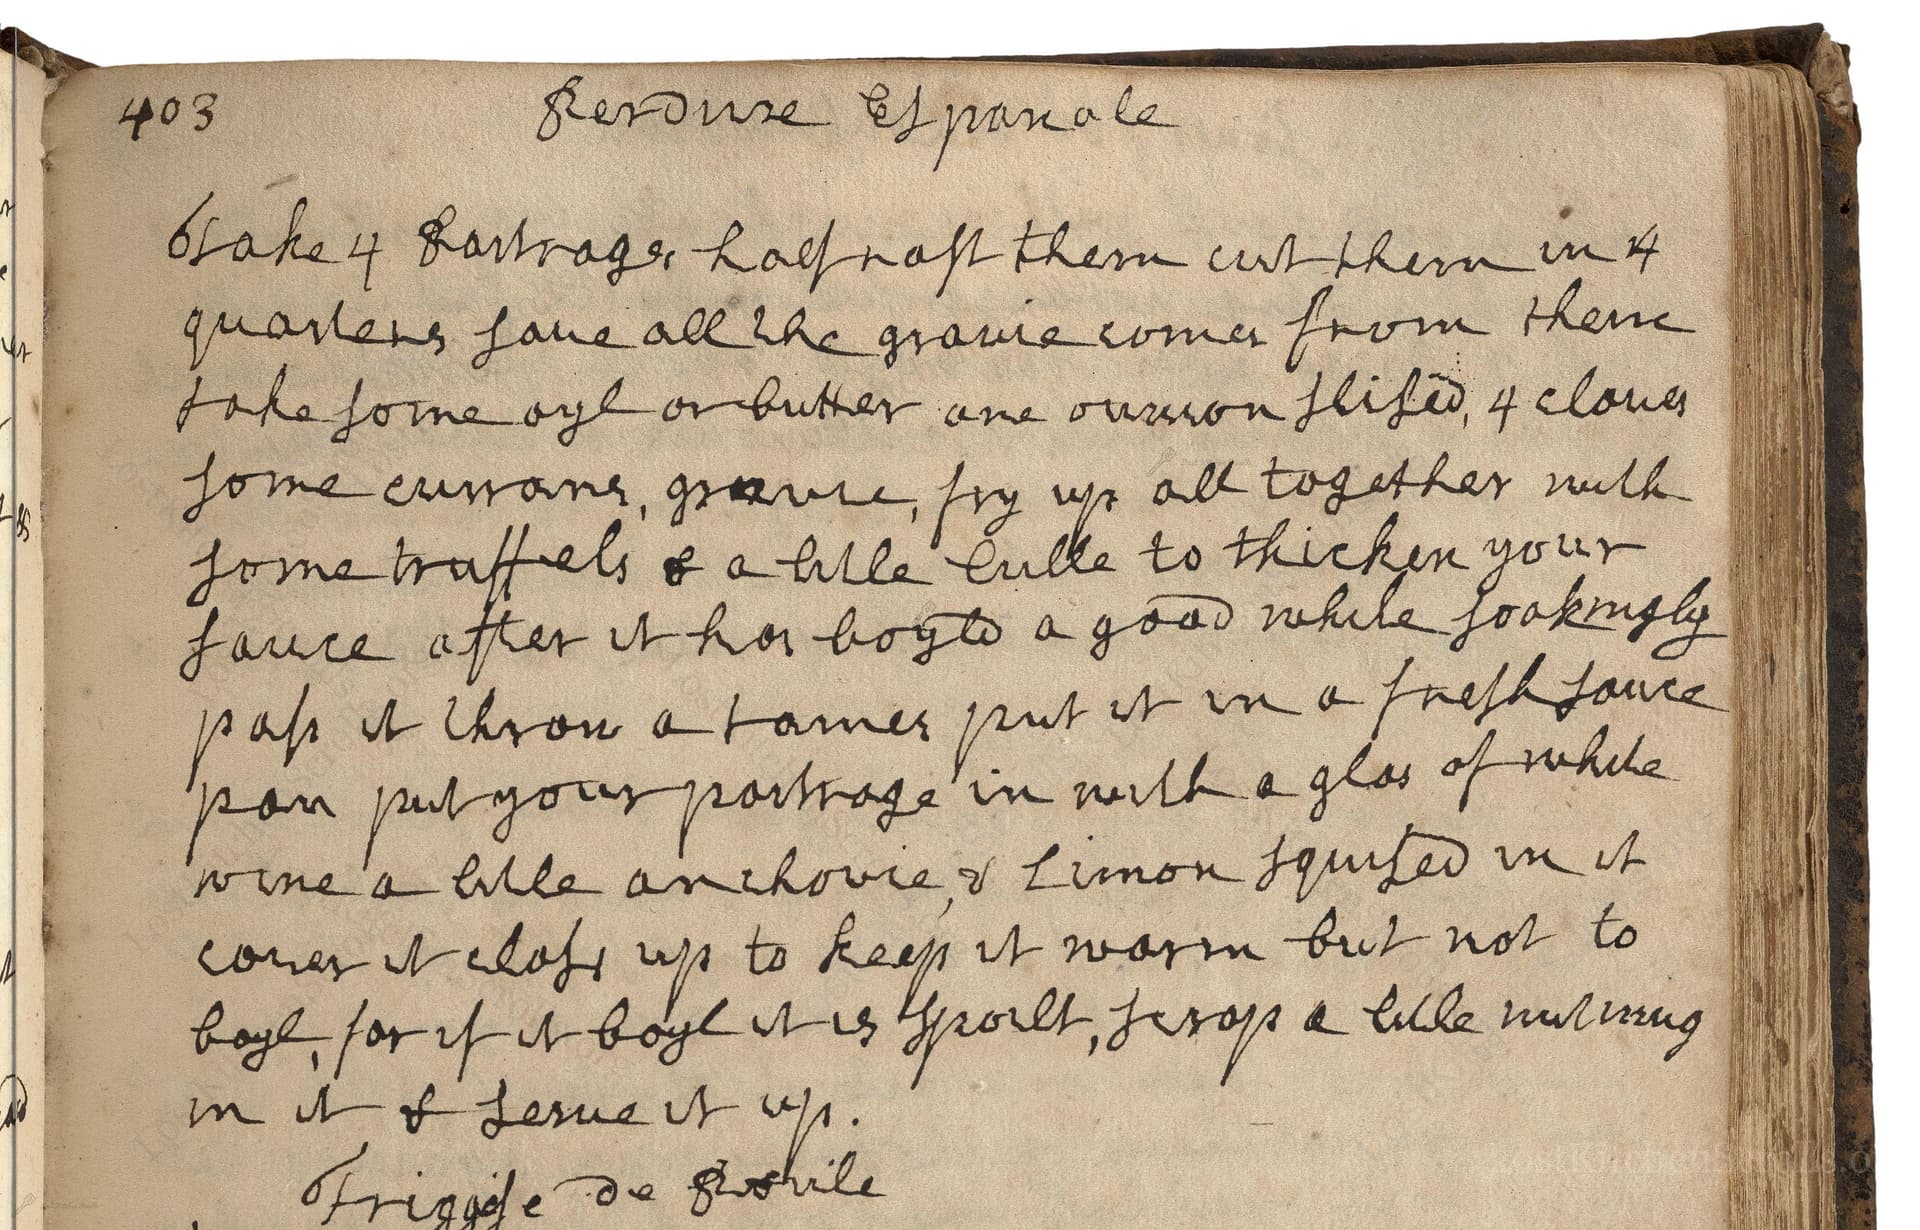 403 Perdrixe Espanole
Take 4 Partrages half rost them cut them in 4
quarters save all the gravie comes from them
take some oyl or butter one ounion slised, 4 cloves
some currans, gravie, fry up all together with
some truffels & a litle Culle to thicken your
sauce after it has boyld a good while soakingly
pass it throw a tames put it in a fresh sauce
pan put your partrage in with a glas of white
wine a litle anchovie, & Limon squised in it
cover it closs up to keep it warm but not to
boyl, for if it boyl it is spoilt, scrap a litle nutmug
in it & serve it up.
de